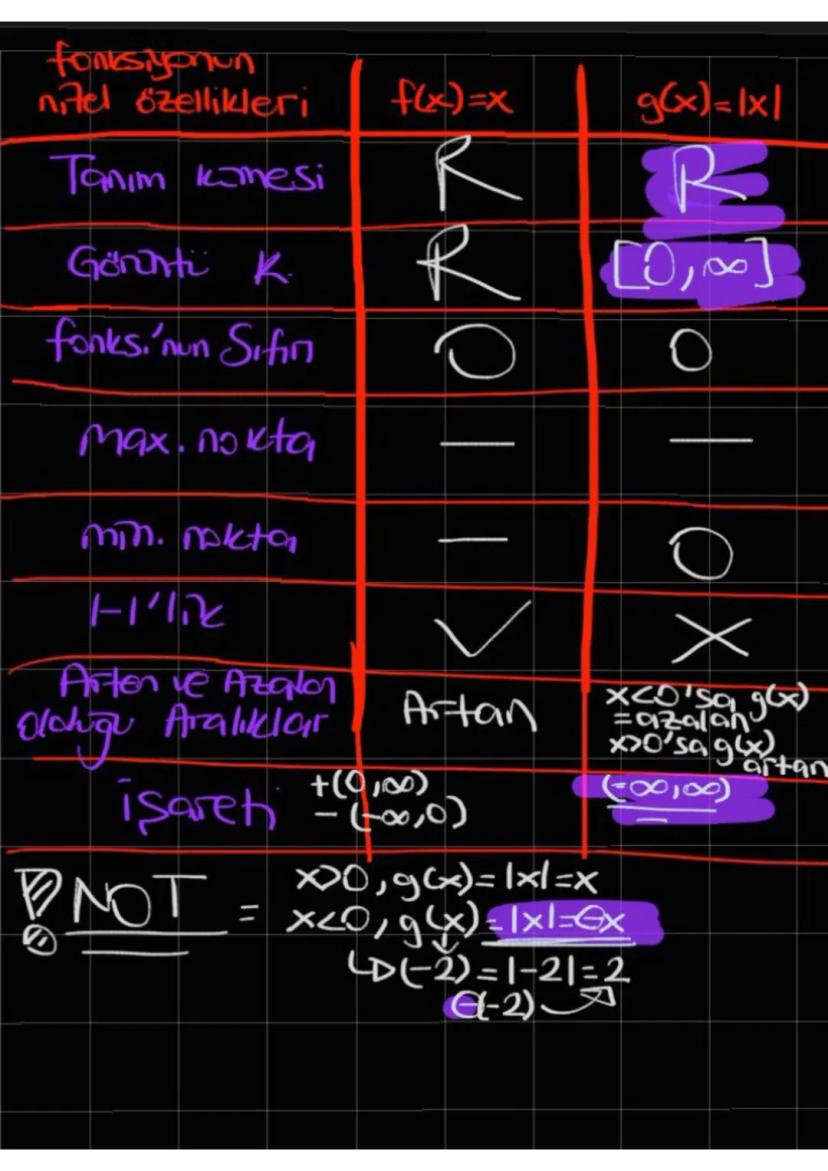 fonksiyonun
nitel özellikleri
f(x)=x
g(x)=|x|
Tanım kümesi
R
R
Görüntü K.
R
[0,∞]
fonks.'nun Sıfırı
0
0
max. nokta
—
—
min. nokta
—
0
1-1'lik
✓
X
Artan ve Azalan
olduğu Aralıklar
Artan
x<0'sa g(x)
=azalan
x>0'sa g(x)
artan
işareti
+(0,∞)
-(-∞,0)
(-∞,∞)
! NOT =
x>0, g(x)=|x|=x
x<0, g(x)=|x|=-x
↳(-2)=|-2|=2
-(-2)